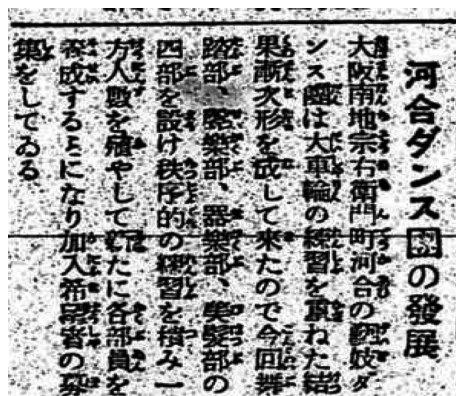 河合ダンス團の發展
大阪南地宗右衛門町河合の藝妓ダ
ンス團は大車輪の練習を重ねた結
果漸次形を成して來たので今回舞
踏部、聲樂部、器樂部、美髮部の
四部を設け秩序的の練習を積み一
方人數を殖やして新たに各部員を
養成するとになり加入希望者の募
集をしてゐる